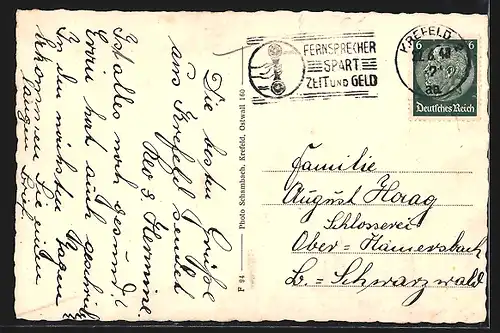 Die besten Grüße
aus Krefeld sendet
Leo & Hermine.
Ist alles noch gesund?
Erwin hat auch geschrieb.
In den nächsten Tagen
bekommen Sie einen
langen Brief.
F 94 — Photo Schambach, Krefeld, Ostwall 160
FERNSPRECHER
SPART
ZEIT UND GELD
KREFELD
6 6
Deutsches Reich
Familie
August Haag
Schlosserei
Ober=Hamersbach
b=Schwarzwald